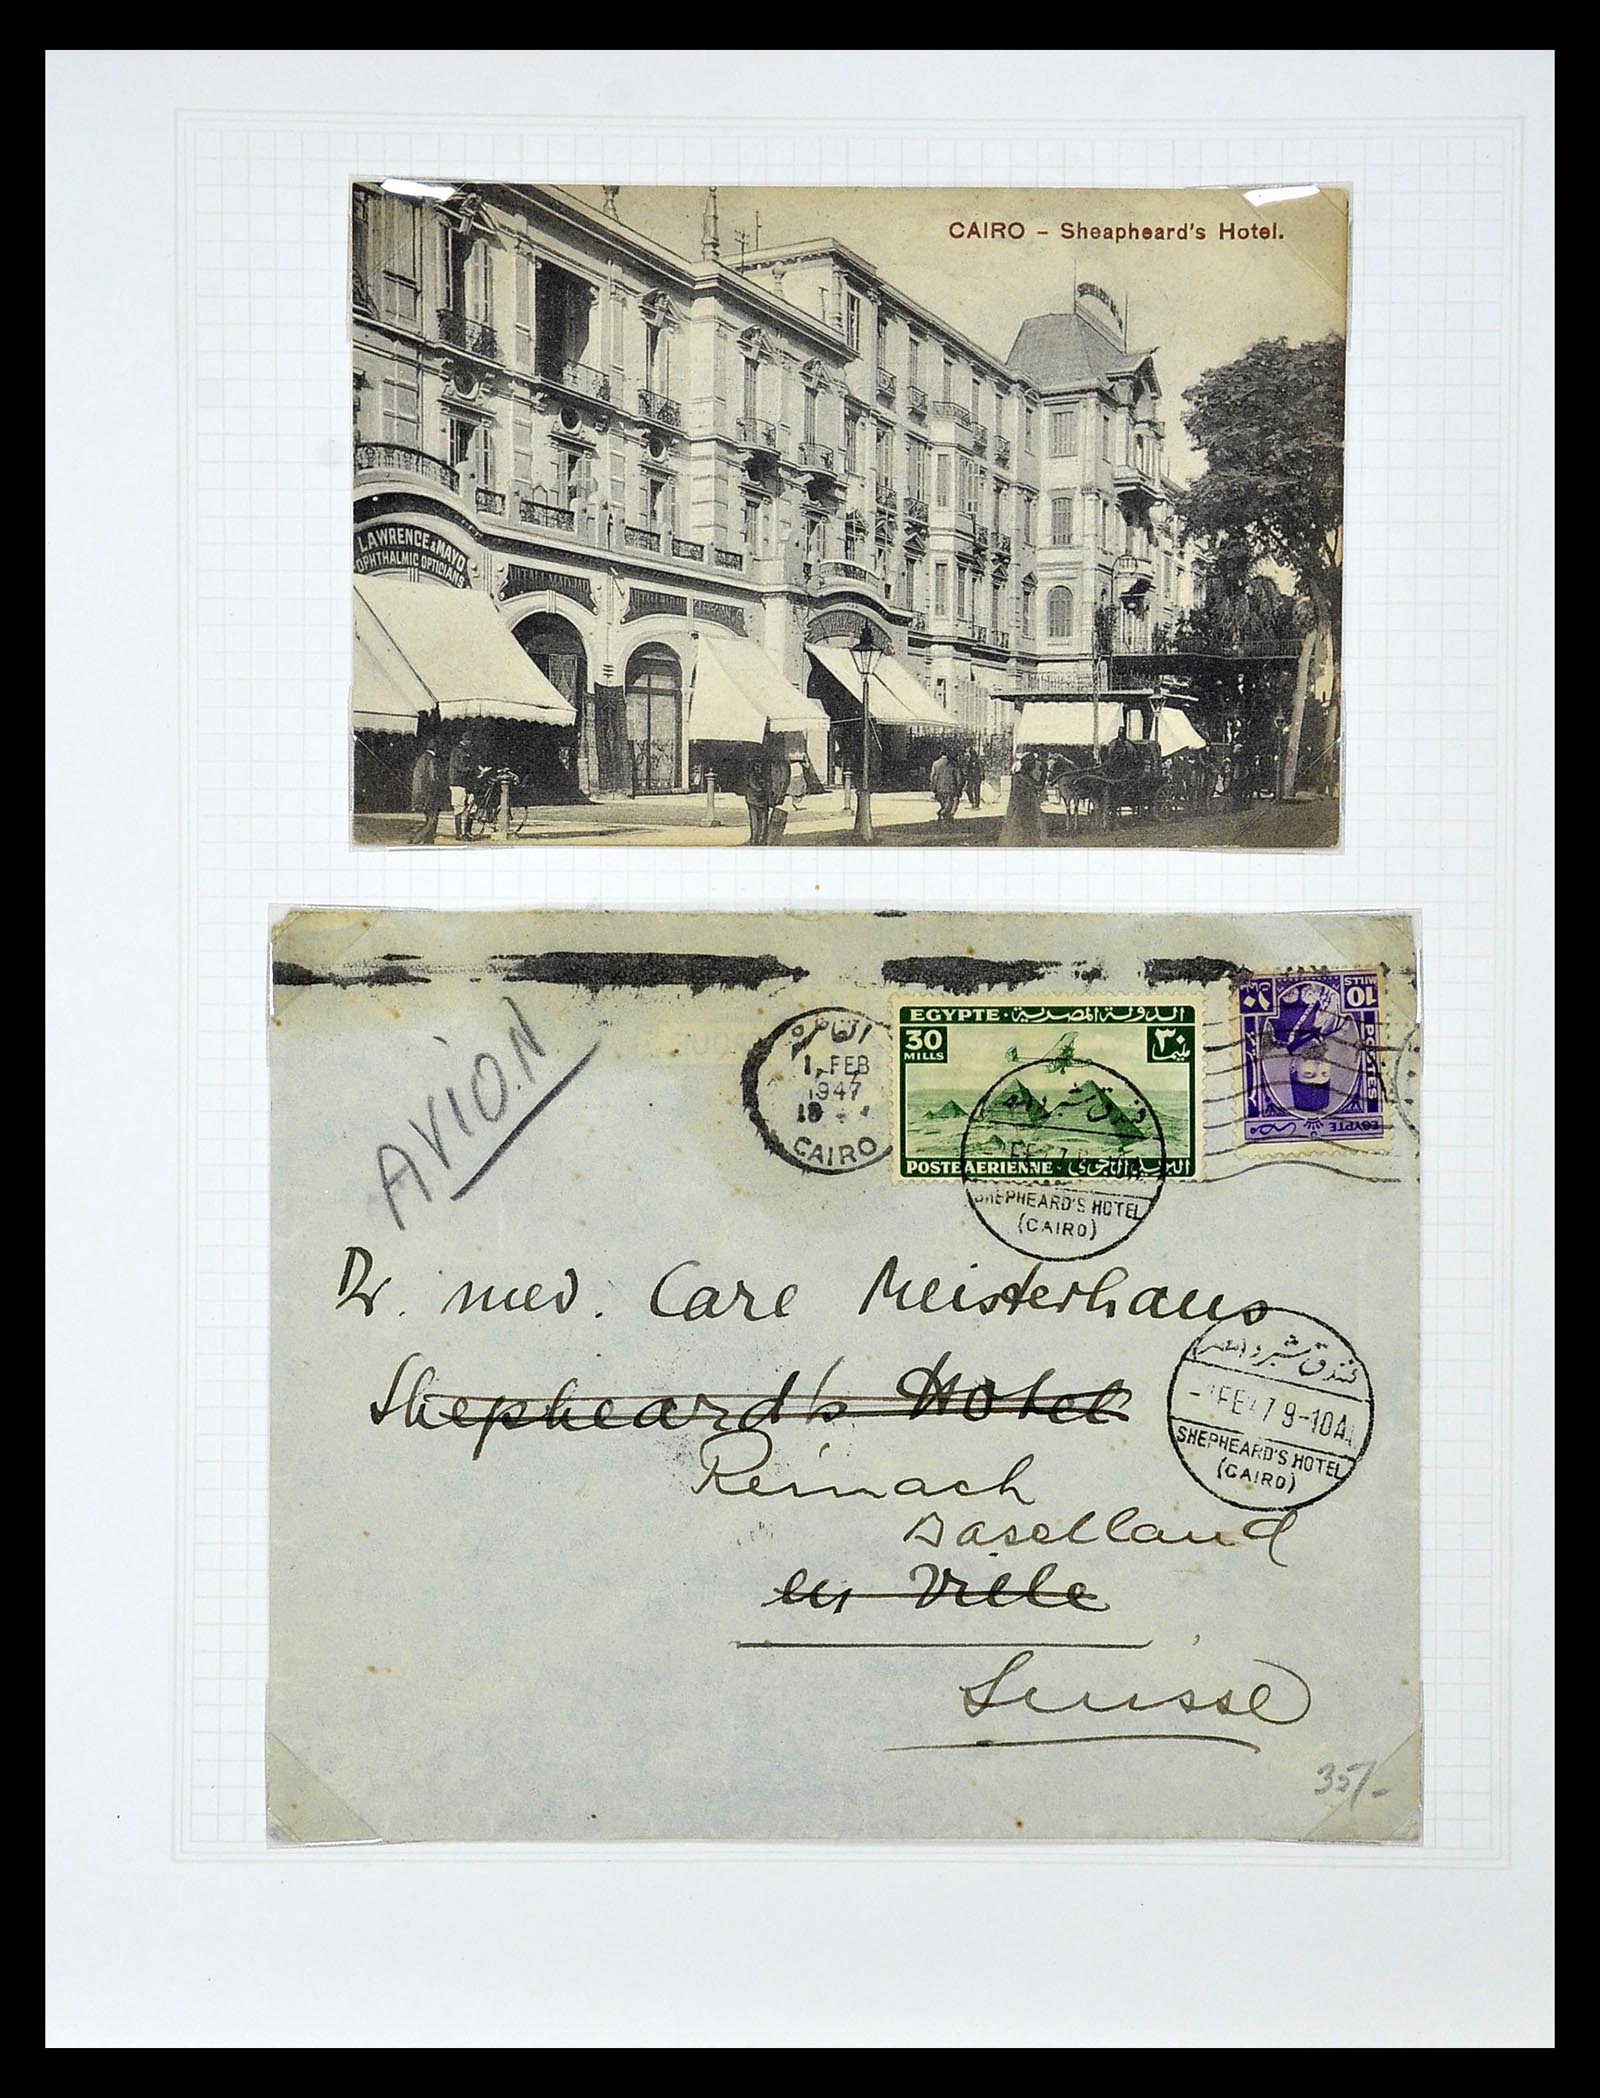 CAIRO – Sheapheard's Hotel.
LAWRENCE & MAYO
OPHTHALMIC OPTICIANS
AVION
القاهرة
1 FEB
1947
18
CAIRO
EGYPTE · الدولة المصرية
30
MILLS
٣٠
مليم
POSTE AERIENNE · البريد الجوى
SHEPHEARD'S HOTEL
(CAIRO)
10
MILLS
POSTES
EGYPTE
مصر
Dr. med. Carl Meisterhans
Shepheard's Hotel
فندق شبرد
FE 47 9-10A
SHEPHEARD'S HOTEL
(CAIRO)
Reinach
Baselland
en Ville
Suisse
35/-